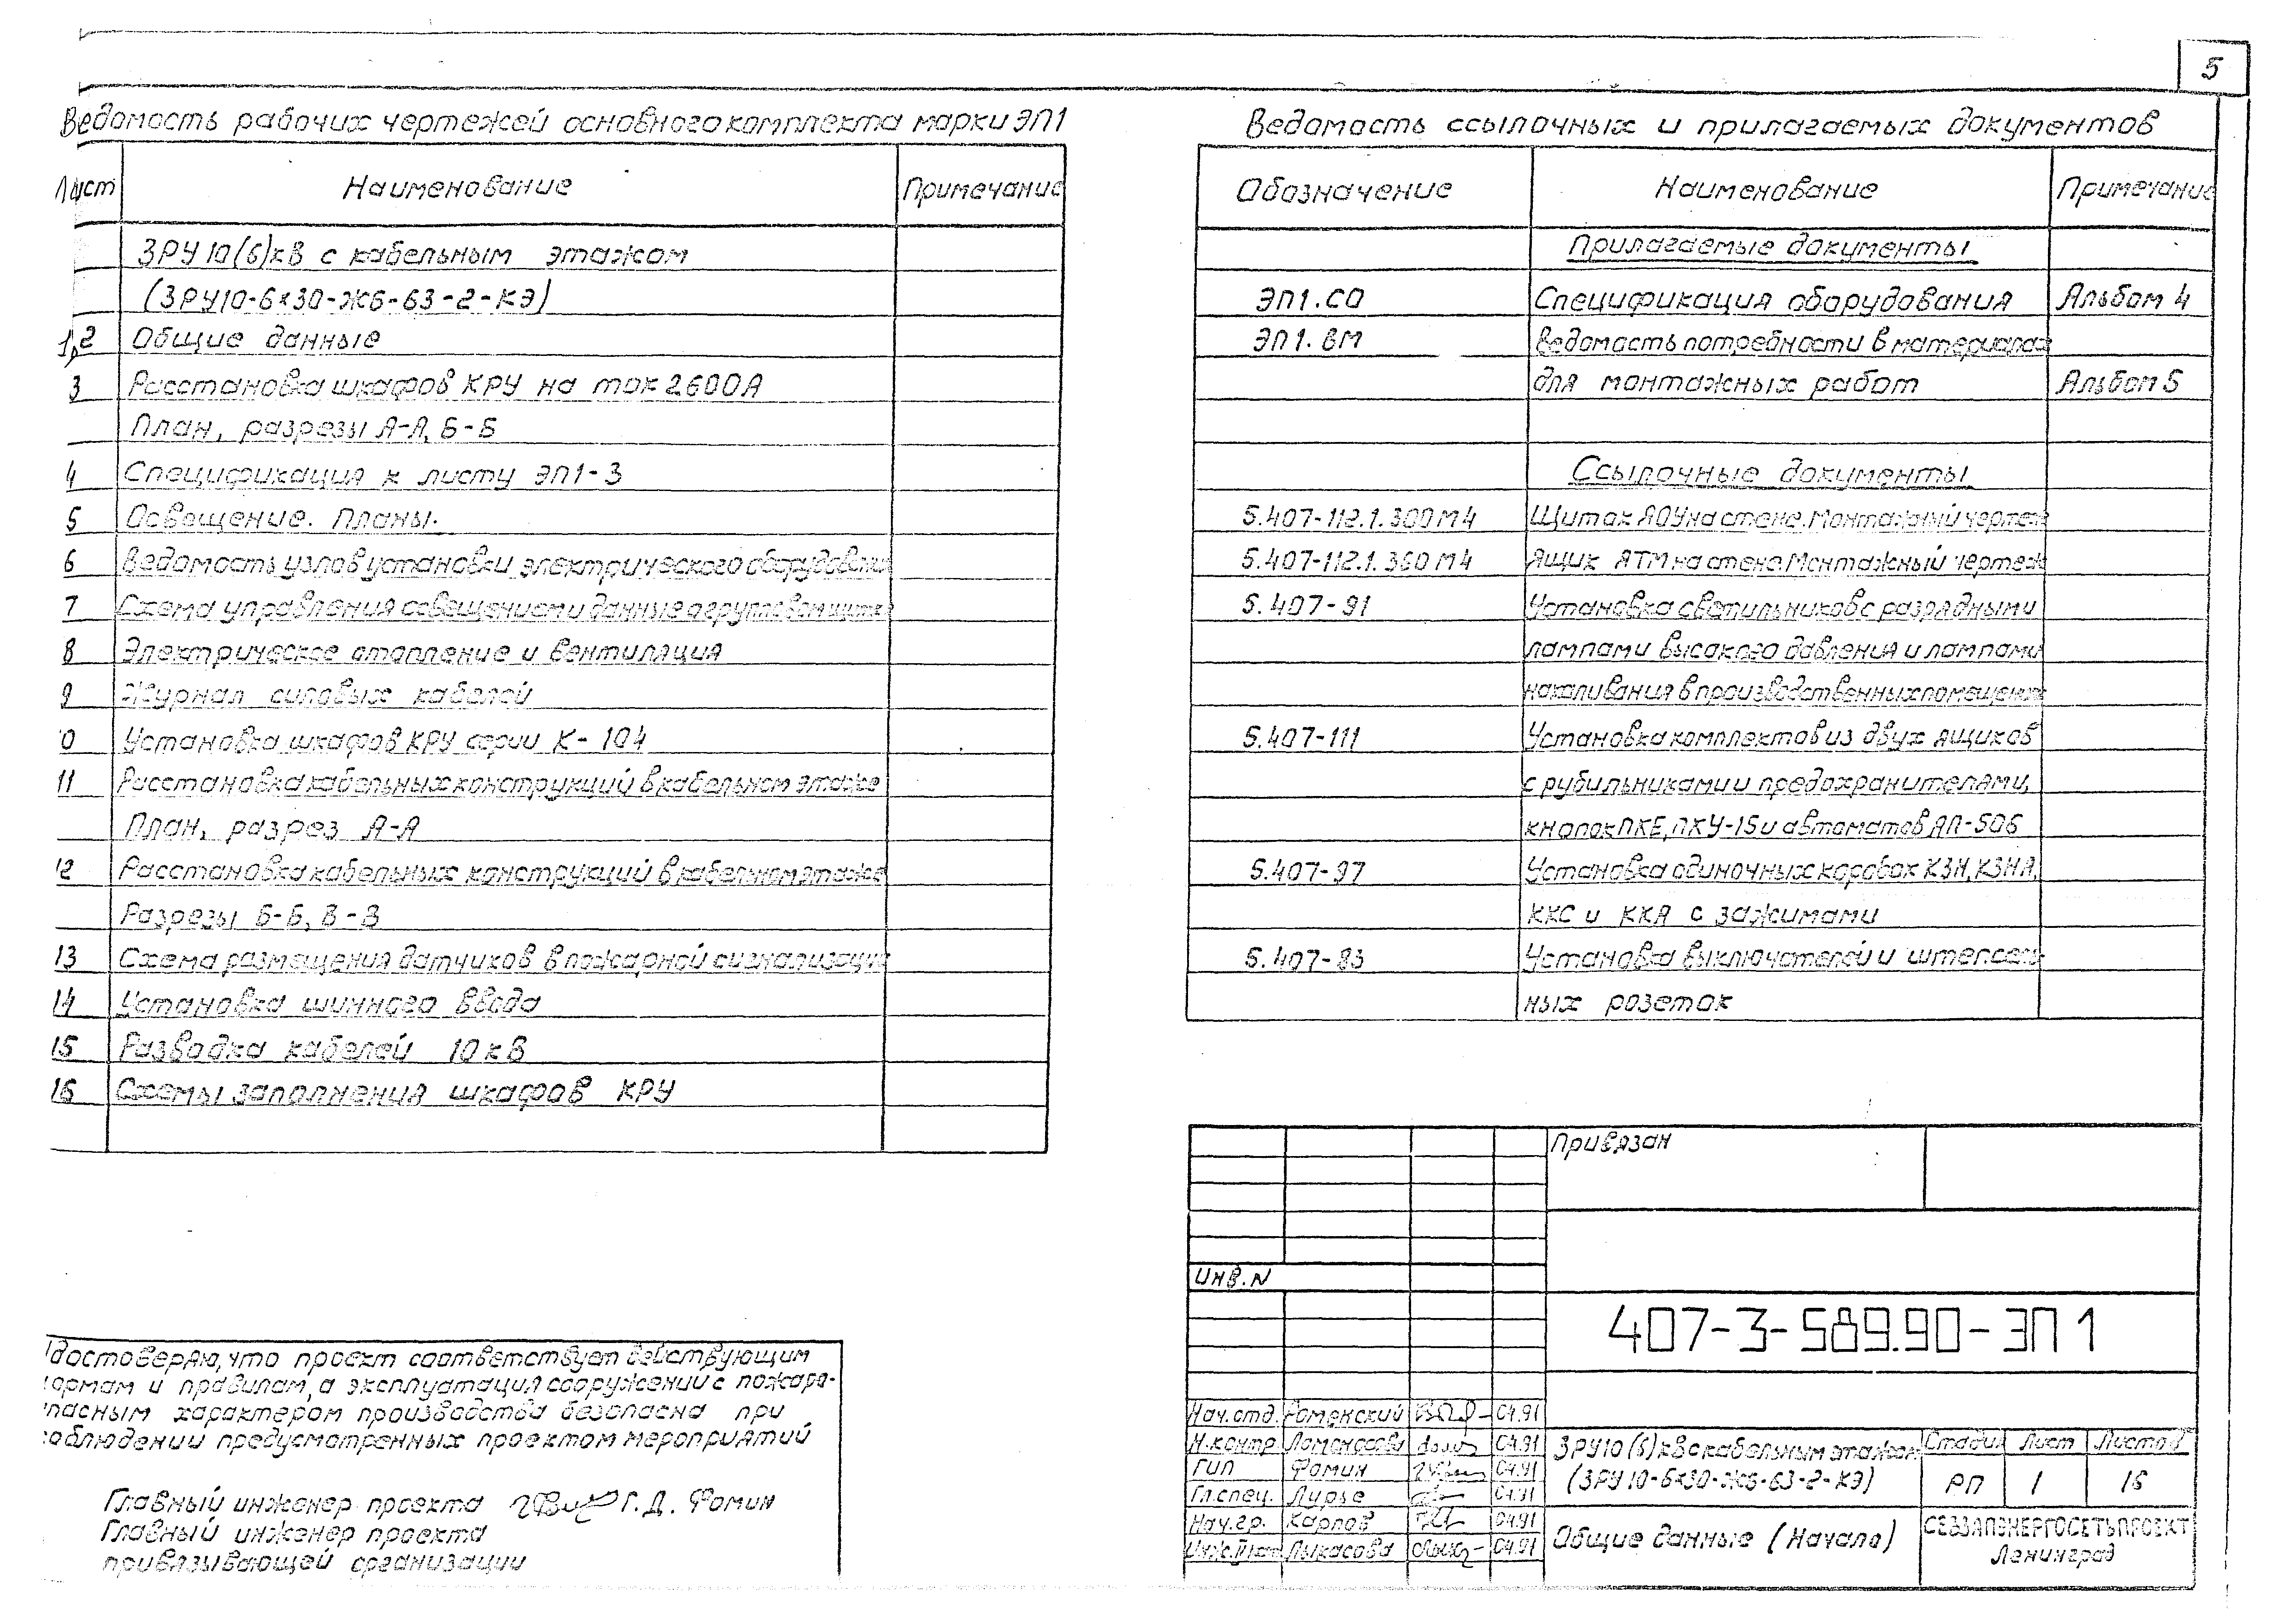 5
Ведомость рабочих чертежей основного комплекта марки ЭП1
Лист Наименование Примечание
ЗРУ 10(6)кВ с кабельным этажом
(ЗРУ10-6×30-ЖБ-63-2-КЭ)
1,2 Общие данные
3 Расстановка шкафов КРУ на ток 2600А
План, разрезы А-А, Б-Б
4 Спецификация к листу ЭП1-3
5 Освещение. Планы.
6 Ведомость узлов установки электрического оборудования
7 Схема управления освещением и данные о групповом щитке
8 Электрическое отопление и вентиляция
9 Журнал силовых кабелей
10 Установка шкафов КРУ серии К-104
11 Расстановка кабельных конструкций в кабельном этаже
План, разрез А-А
12 Расстановка кабельных конструкций в кабельном этаже
Разрезы Б-Б, В-В
13 Схема размещения датчиков в пожарной сигнализации
14 Установка шинного ввода
15 Разводка кабелей 10кВ
16 Схемы заполнения шкафов КРУ
Ведомость ссылочных и прилагаемых документов
Обозначение Наименование Примечание
Прилагаемые документы
ЭП1.СО Спецификация оборудования Альбом 4
ЭП1.ВМ Ведомость потребности в материалах
для монтажных работ Альбом 5
Ссылочные документы
5.407-112.1.300М4 Щиток ЯОУ на стене. Монтажный чертеж
5.407-112.1.360М4 Ящик ЯТМ на стене. Монтажный чертеж
5.407-91 Установка светильников с разрядными
лампами высокого давления и лампами
накаливания в производственных помещениях
5.407-111 Установка комплектов из двух ящиков
с рубильниками и предохранителями,
кнопок ПКЕ, ПКУ-15 и автоматов АП-50Б
5.407-97 Установка одиночных коробок КЗН, КЗНА,
ККС и ККА с зажимами
5.407-83 Установка выключателей и штепсель-
ных розеток
Удостоверяю, что проект соответствует действующим
нормам и правилам, а эксплуатация сооружений с пожаро-
опасным характером производства безопасна при
соблюдении предусмотренных проектом мероприятий
Главный инженер проекта Г.Д. Фомин
Главный инженер проекта
привязывающей организации
Привязан
Инв.N
407-3-589.90-ЭП1
Нач.отд. Роменский 04.91
Н.контр. Ломоносова 04.91
ГИП Фомин 04.91
Гл.спец. Лурье 04.91
Нач.гр. Карпов 04.91
Лыкасова 04.91
ЗРУ10(6)кВ с кабельным этажом
(ЗРУ10-6×30-ЖБ-63-2-КЭ)
Стадия Лист Листов
РП 1 16
Общие данные (Начало)
СЕВЗАПЭНЕРГОСЕТЬПРОЕКТ
Ленинград